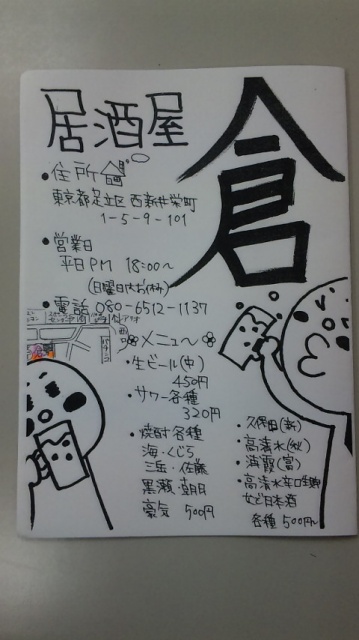 居酒屋
倉
・住所
東京都足立区西新井栄町
1-5-9-101
・営業日
平日PM 18:00〜
(日曜日はお休み)
・電話 080-6512-1137
メニュ〜
・生ビール(中)
450円
・サワー各種
320円
・焼酎各種
海・くじら
三岳・佐藤
黒瀬・朝日
豪気 500円
・久保田(千)
・高清水(純)
・満霞(富)
・高清水辛口生貯
など日本酒
各種500円〜